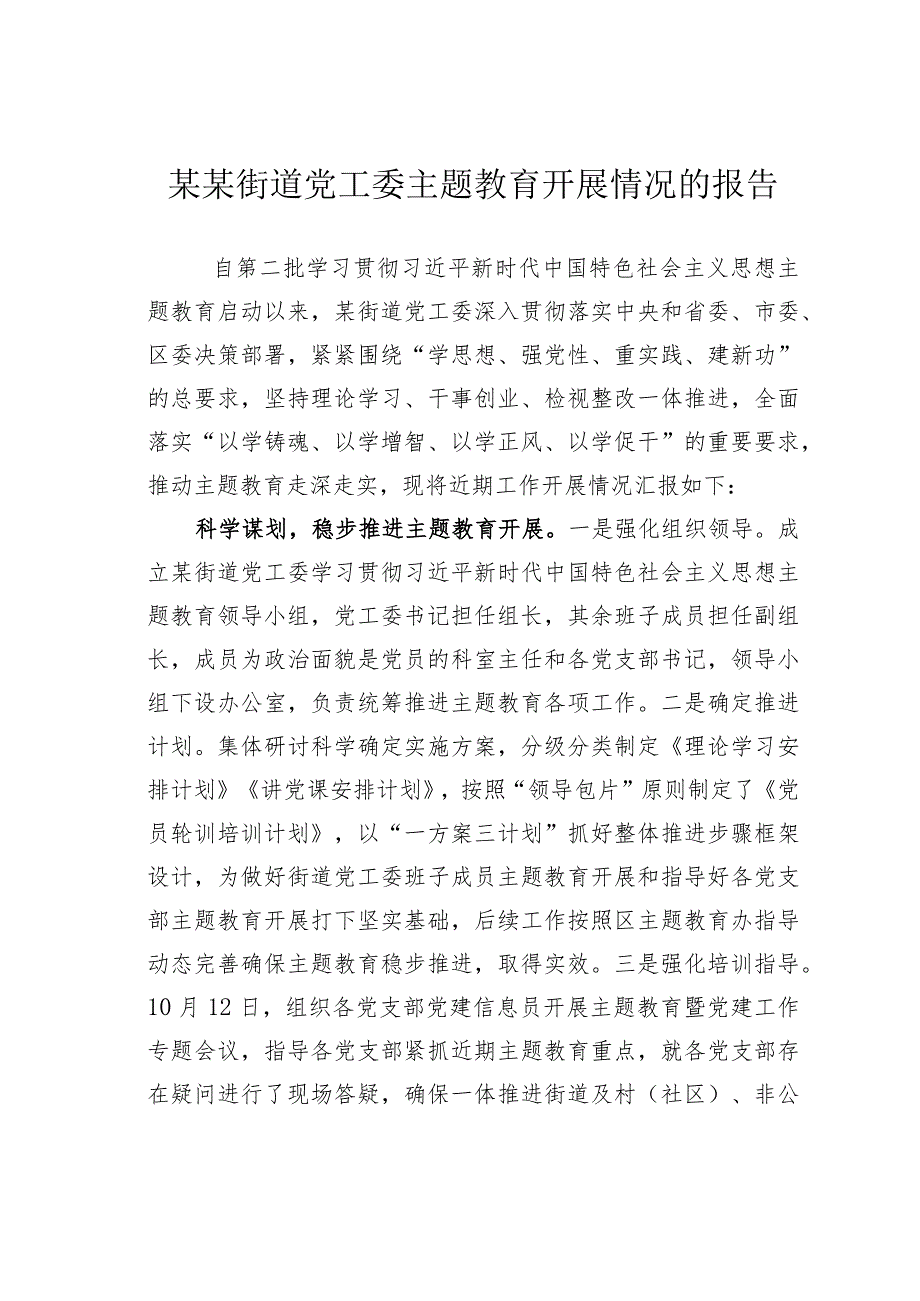 某某街道党工委主题教育开展情况的报告
自第二批学习贯彻习近平新时代中国特色社会主义思想主
题教育启动以来，某街道党工委深入贯彻落实中央和省委、市委、
区委决策部署，紧紧围绕“学思想、强党性、重实践、建新功”
的总要求，坚持理论学习、干事创业、检视整改一体推进，全面
落实“以学铸魂、以学增智、以学正风、以学促干”的重要要求，
推动主题教育走深走实，现将近期工作开展情况汇报如下：
科学谋划，稳步推进主题教育开展。一是强化组织领导。成
立某街道党工委学习贯彻习近平新时代中国特色社会主义思想主
题教育领导小组，党工委书记担任组长，其余班子成员担任副组
长，成员为政治面貌是党员的科室主任和各党支部书记，领导小
组下设办公室，负责统筹推进主题教育各项工作。二是确定推进
计划。集体研讨科学确定实施方案，分级分类制定《理论学习安
排计划》《讲党课安排计划》，按照“领导包片”原则制定了《党
员轮训培训计划》，以“一方案三计划”抓好整体推进步骤框架
设计，为做好街道党工委班子成员主题教育开展和指导好各党支
部主题教育开展打下坚实基础，后续工作按照区主题教育办指导
动态完善确保主题教育稳步推进，取得实效。三是强化培训指导。
10月12日，组织各党支部党建信息员开展主题教育暨党建工作
专题会议，指导各党支部紧抓近期主题教育重点，就各党支部存
在疑问进行了现场答疑，确保一体推进街道及村（社区）、非公